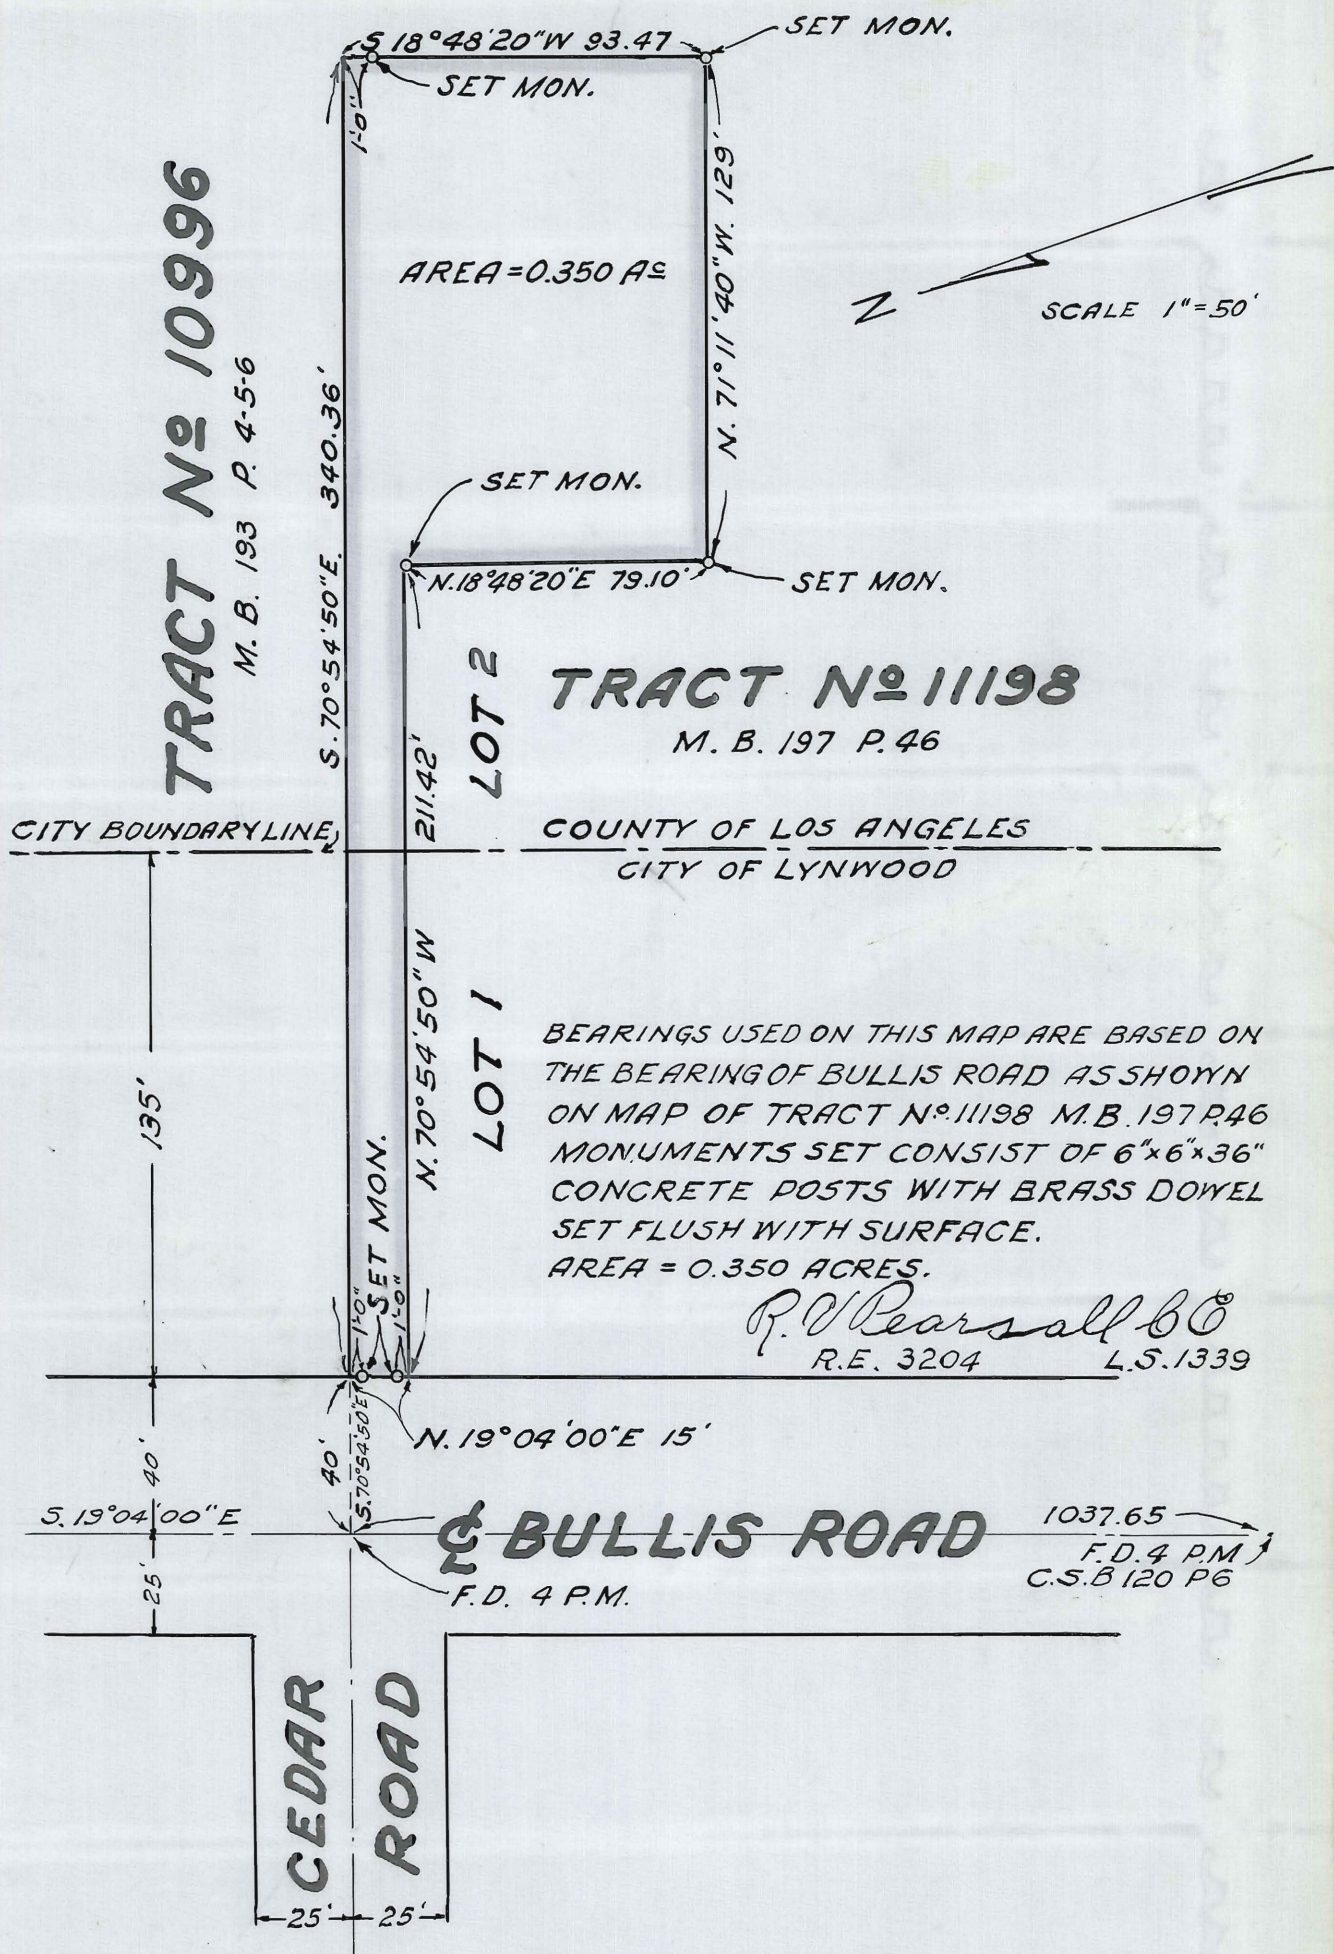 S 18°48'20"W 93.47
SET MON.
SET MON.
1'-0"
N. 71°11'40"W. 129'
AREA=0.350 Ac
N
SCALE 1"=50'
TRACT No 10996
M. B. 193 P. 4-5-6
S. 70°54'50"E. 340.36'
SET MON.
N.18°48'20"E 79.10'
SET MON.
LOT 2
TRACT No 11198
M. B. 197 P. 46
211.42'
CITY BOUNDARY LINE
COUNTY OF LOS ANGELES
CITY OF LYNWOOD
135'
N. 70°54'50"W
LOT 1
BEARINGS USED ON THIS MAP ARE BASED ON
THE BEARING OF BULLIS ROAD AS SHOWN
ON MAP OF TRACT No. 11198 M.B. 197 P.46
MONUMENTS SET CONSIST OF 6"x6"x36"
CONCRETE POSTS WITH BRASS DOWEL
SET FLUSH WITH SURFACE.
AREA = 0.350 ACRES.
R. V Pearsall C E
R.E. 3204 L.S. 1339
SET MON.
1'-0"
1'-0"
N. 19°04'00"E 15'
40'
40'
S.70°54'50"E
S. 19°04'00"E
℄ BULLIS ROAD
1037.65
F.D. 4 P.M
C.S.B 120 P6
25'
F.D. 4 P.M.
CEDAR
ROAD
25' 25'